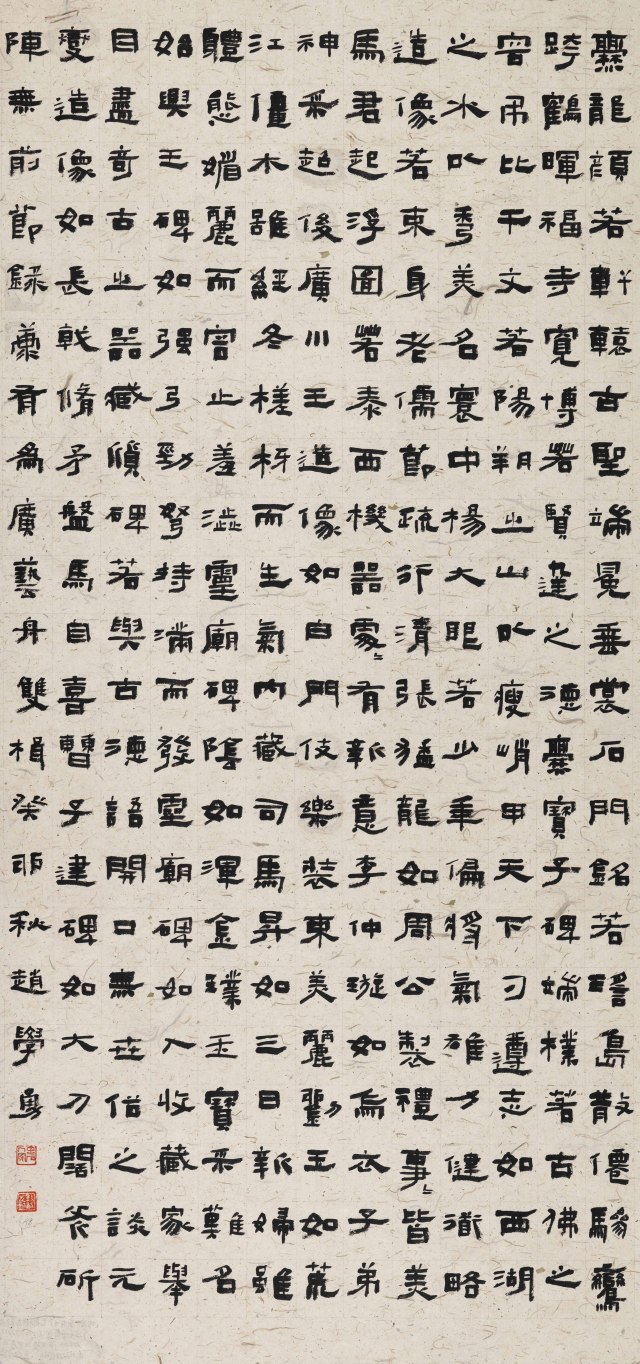 爨龍顏若軒轅古聖端冕垂裳石門銘若瑤島散僊驂鸞
跨鶴暉福寺寬博若賢達之德爨寶子碑端樸若古佛之
容吊比干文若陽朔之山以瘦峭甲天下刁遵志如西湖
之水以秀美名寰中楊大眼若少年偏將氣雄力健道略
造像若束身老儒節疏行清張猛龍如周公製禮事〻皆美
馬君起浮圖若泰西機器處〻有新意李仲璇如烏衣子弟
神采超俊廣川王造像如白門伎樂裝束美麗玉如荒
江僵木雖經冬槎枒而生氣內藏司馬昇如三日新婦雖
體態媚麗而容止羞澀靈廟碑陰如渾金璞玉寶采難名
始興王碑如强弓勁弩持滿而發靈廟碑如入收藏家舉
目盡奇古之器臧質碑若與古德語開口無世俗之談元
燮造像如長戟脩矛盤馬自喜曹子建碑如大刀闊斧斫
陣無前節錄康有為廣藝舟雙楫癸卯秋趙學勇